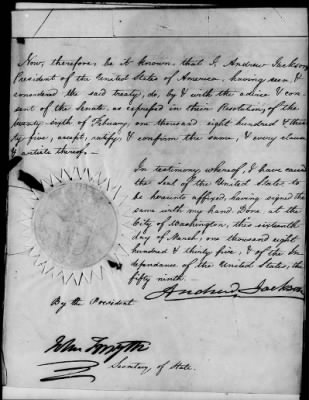 Now, therefore, be it known, that I, Andrew Jackson,
President of the United States of America, having seen, &
considered the said treaty, do, by & with the advice & con-
sent of the Senate, as expressed in their Resolution, of the
twenty-sixth of February, one thousand eight hundred & thir-
ty five, accept, ratify, & confirm the same, & every clause
& article thereof.—
In testimony whereof, I have caused
the Seal of the United States to
be hereunto affixed, having signed the
same with my hand. Done at the
City of Washington, this sixteenth
day of March, one thousand eight
hundred & thirty five, & of the In-
dependance of the United States, the
fifty ninth.—
Andrew Jackson
By the President
John Forsyth
Secretary, of State.